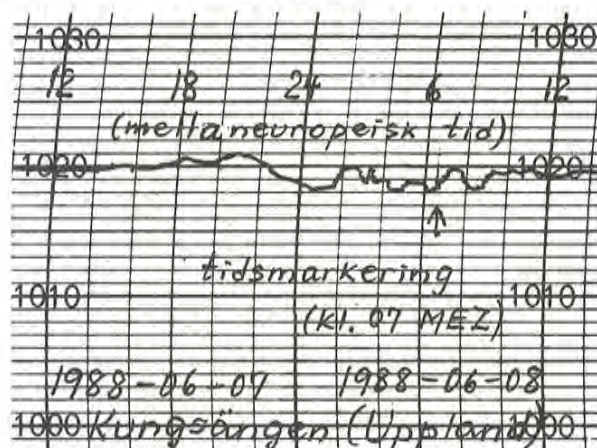 1030 1030
12 18 24 6 12
(mellaneuropeisk tid)
1020 1020
tidsmarkering
1010 1010
(kl. 07 MEZ)
1988-06-07 1988-06-08
1000 Kungsängen (Uppland) 1000